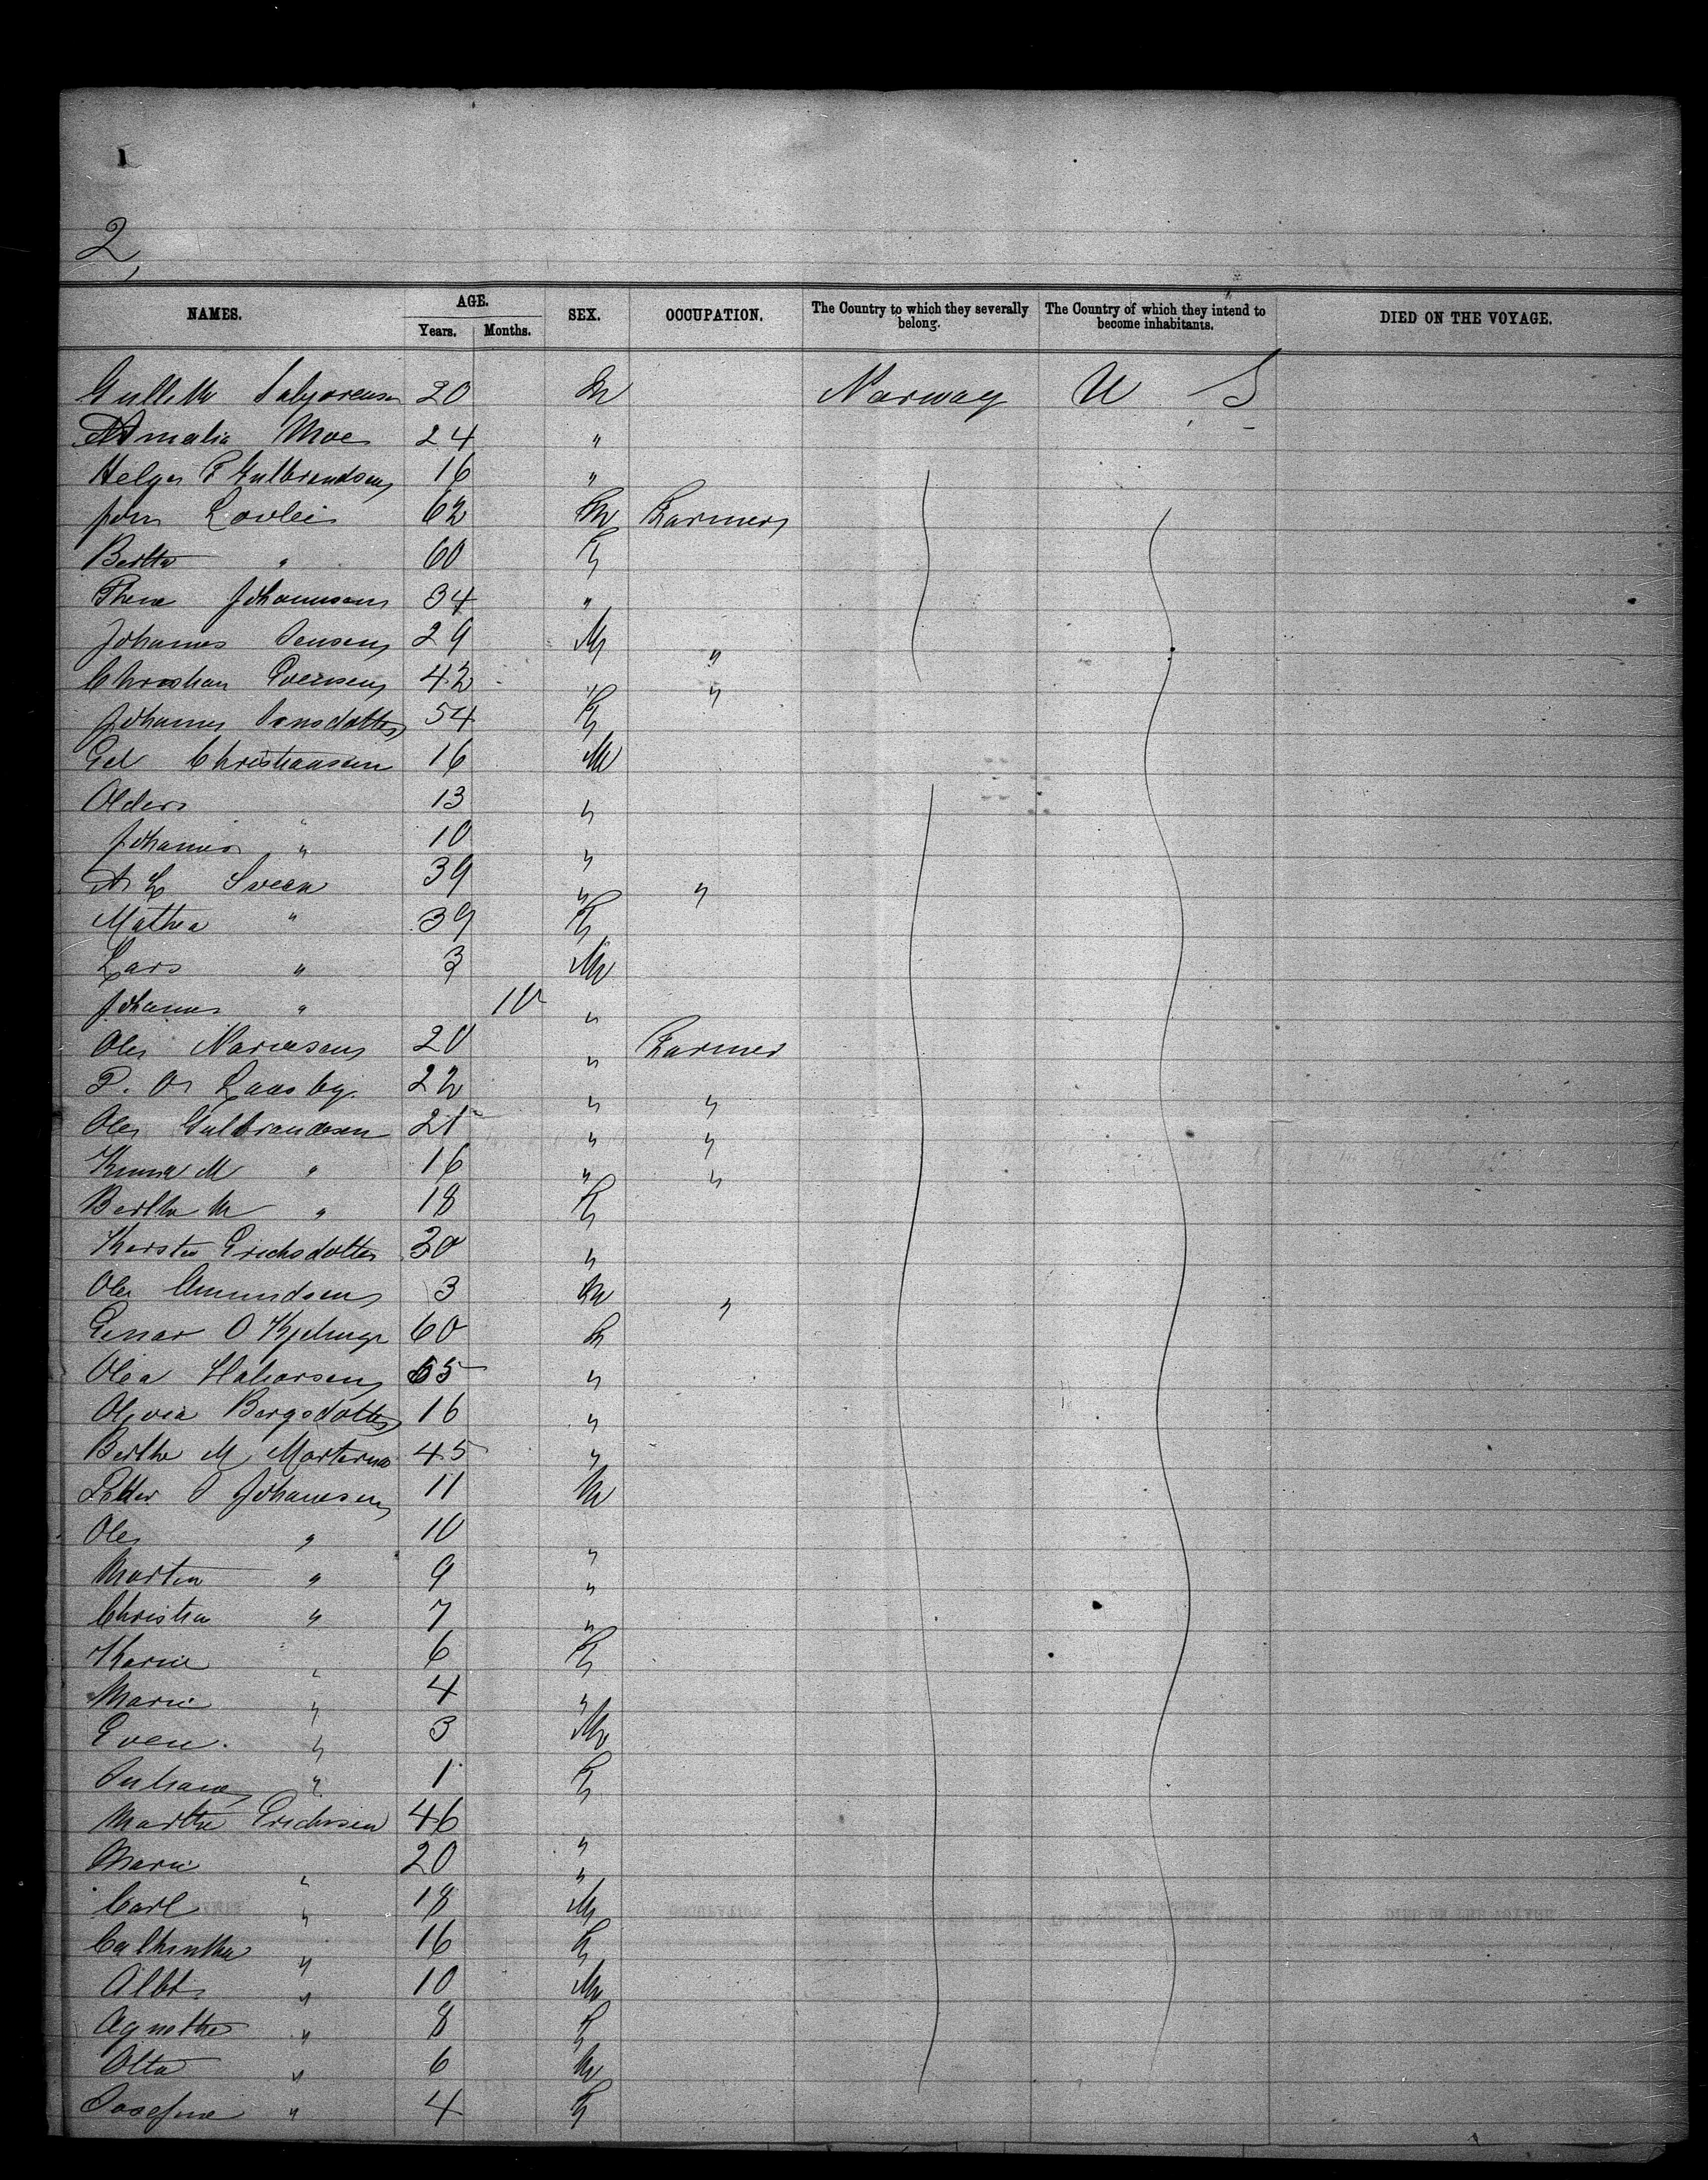 2,
NAMES. AGE. SEX. OCCUPATION. The Country to which they severally belong. The Country of which they intend to become inhabitants. DIED ON THE VOYAGE.
Years. Months.
20 Norway U S
Amalia Moe 24 "
Helger P Gulbrandsen 16 "
John 62 M Farmer
Bertha " 60 F
Thene Johannesen 34 "
Johannes Jensen 29 M "
Christian Evensen 42 " "
Johanne Jensdatter 54 F
Christiansen 16 M
13 "
Johannes " 10 "
A L Sveen 39 " "
Mathea " 39 F
Lars " 3 M
Johannes " 10 "
Ole 20 " Farmer
P. O. 22 " "
Ole Gulbrandsen 21 " "
M " 16 " "
Bertha M " 18 F
Kersten Erichsdatter 30 "
Ole Amundsen 3 M "
O 60
Olea Halvorsen 65 "
Olivia Bergsdatter 16 "
Berthe M 45 "
Petter Johannesen 11 M
Ole " 10 "
Morten " 9 "
Christian " 7 "
Karin " 6 F
Marie " 4 "
Even " 3 M
Juliane " 1 F
Marthe Erichsen 46 "
Marie " 20 "
Carl " 18 M
" 16 F
Albt " 10 M
Agnethe " 8 F
Otto " 6 M
Josefine " 4 F